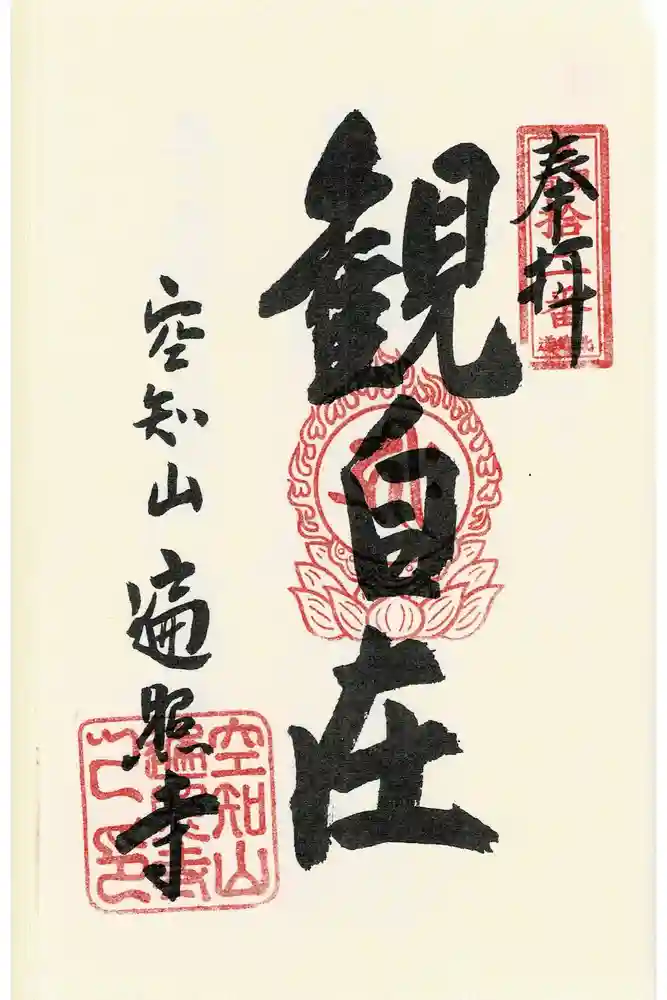 奉拝
観自在
空知山 遍照寺
空知山
遍照寺
之印